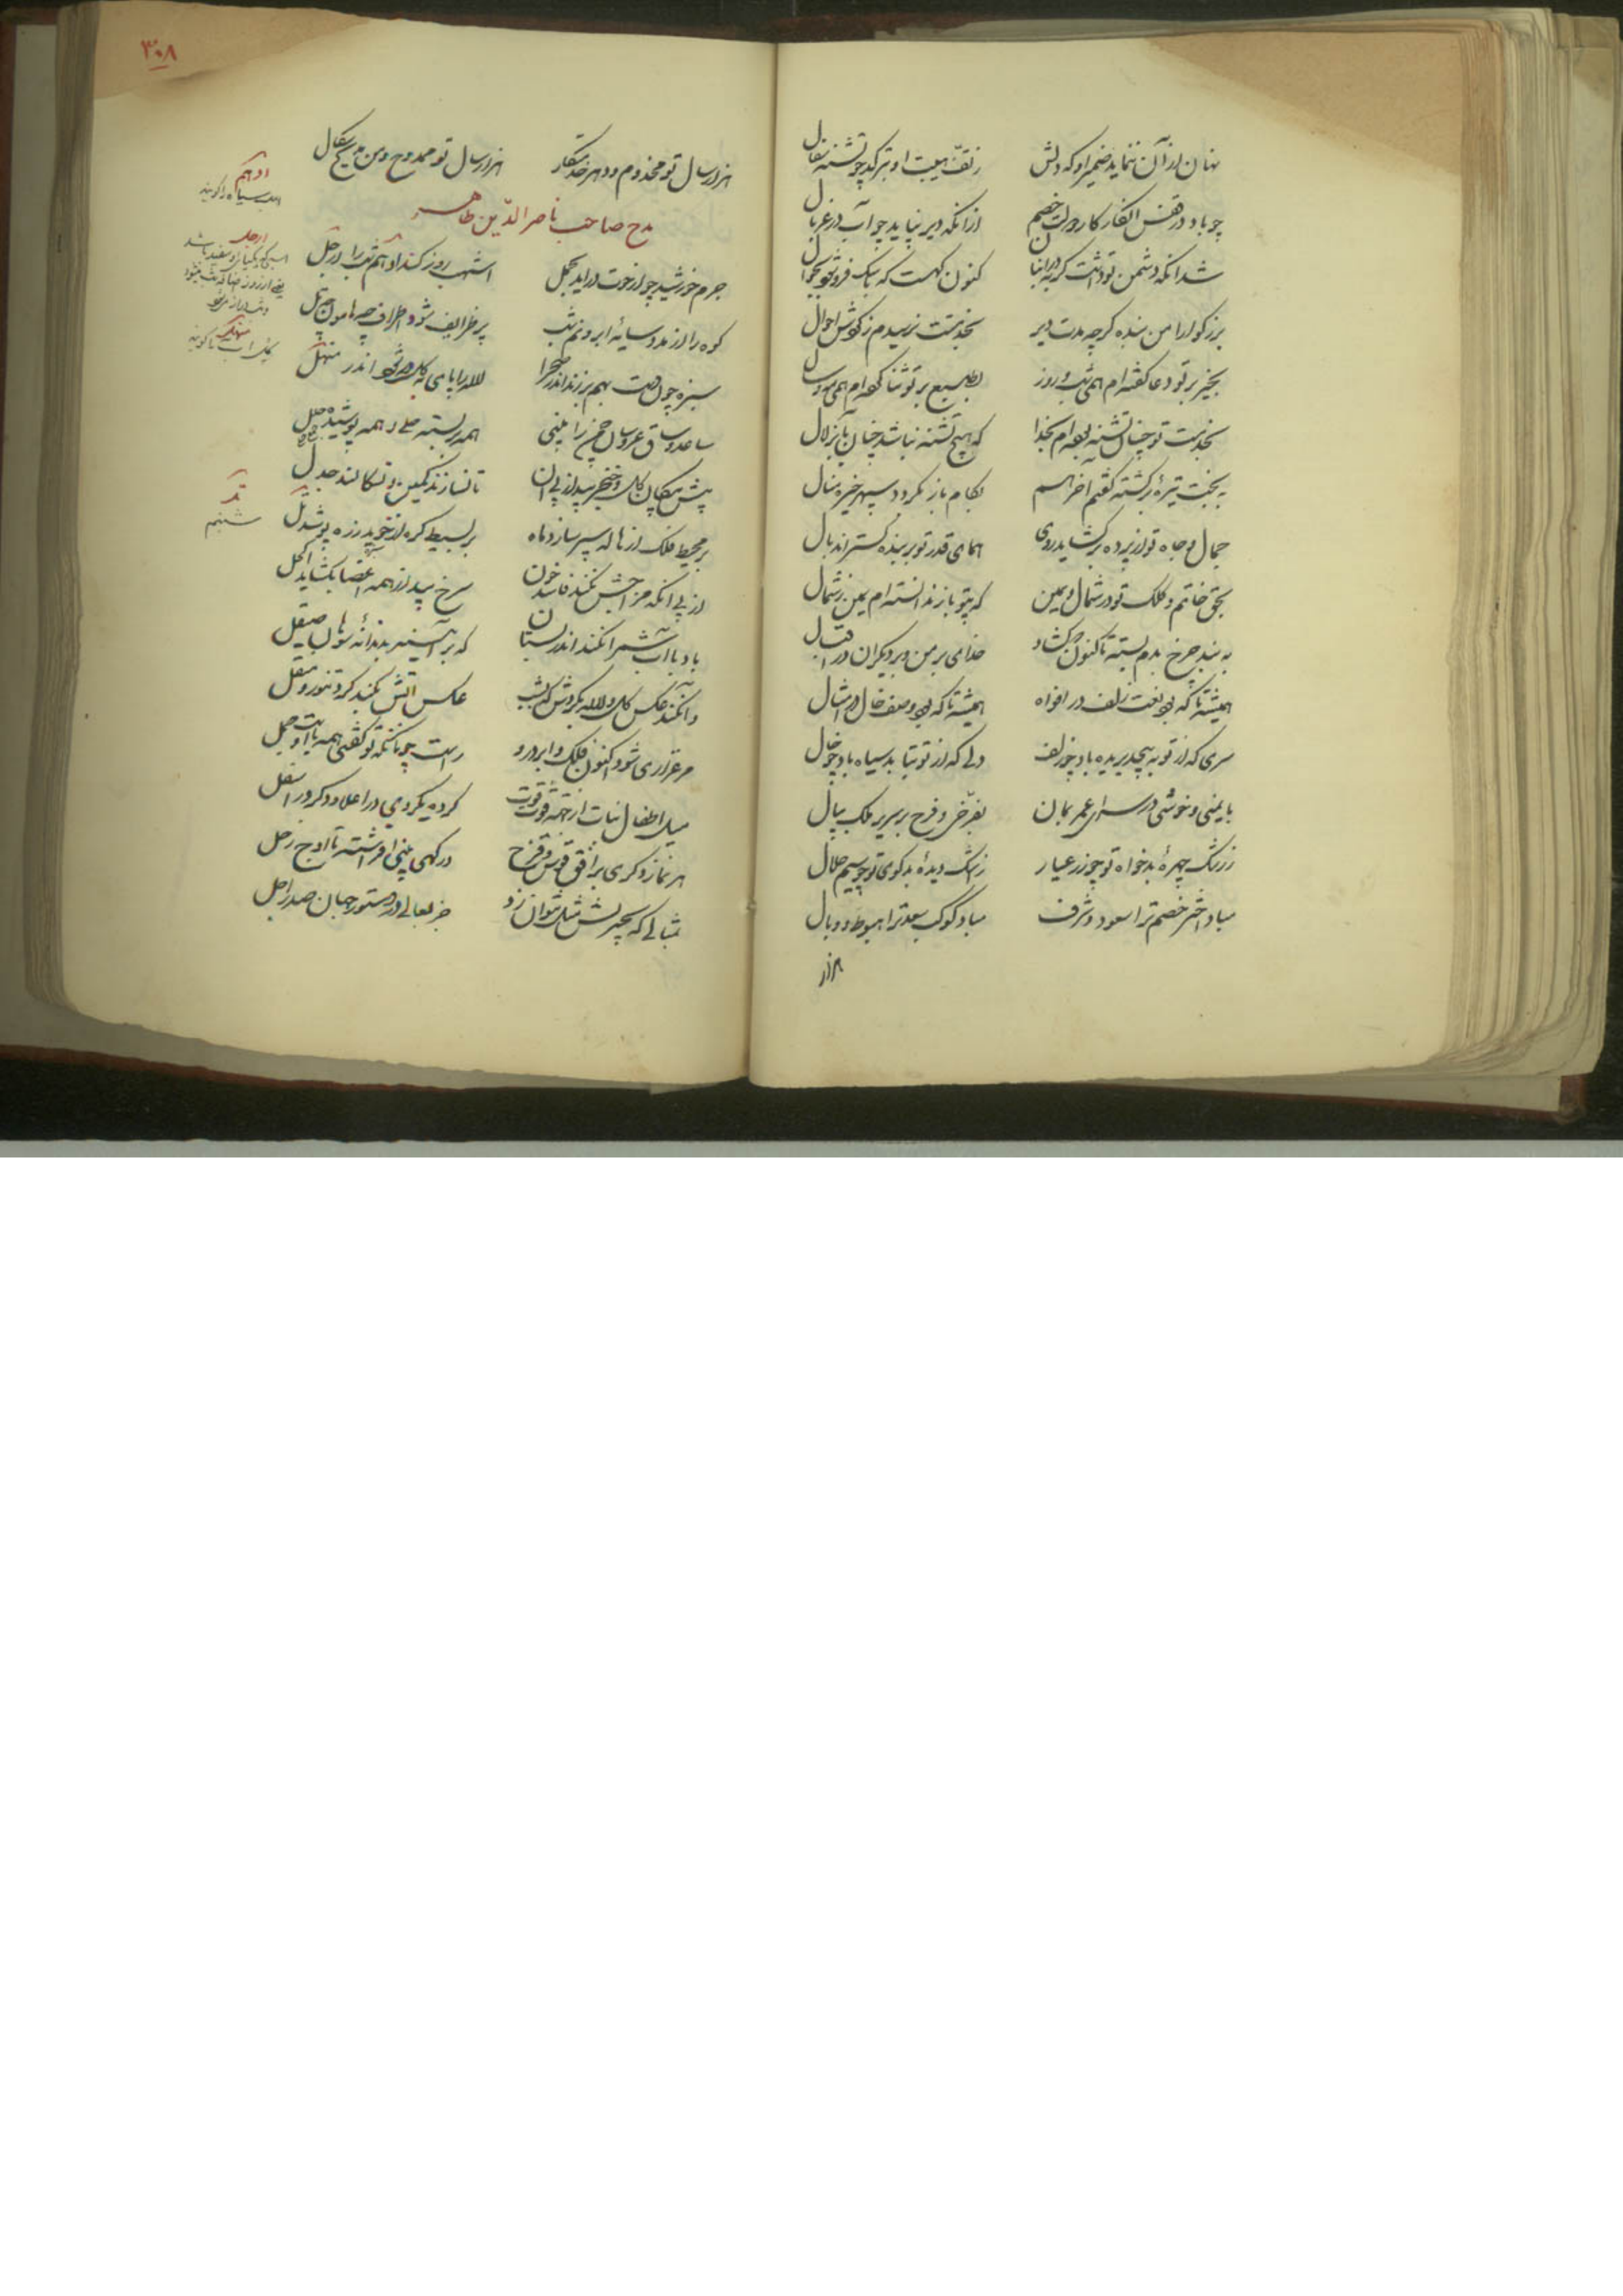 نهان از آن ننماید ضمیر او که دلش ز تف هیبت او بترکد چو تشنه سفال
چو باد در قفس انگار کار دولت خصم از آنکه دیر نپاید چو آب در غربال
شد آنکه دشمن تو داشت گربه در انبان کنون گهست که با سگ فرو شود بجوال
بزرگوارا من بنده گرچه مدت دیر بخدمتت نرسیدم ز گردش احوال
بخیر بر تو دعا گفته‌ام همی شب و روز بطبع بر تو ثنا گفته‌ام همی مه و سال
بخدمت تو چنان تشنه بوده‌ام بخدا که هیچ تشنه نباشد چنان بآب زلال
به بخت تیره برگشته گفتم آخر هم بکام باز نگردد سپهر خیره منال
جمال و جاه تو از پرده برگشاید روی همای قدر تو بر بنده گستراند بال
بحق خاتم و کلک تو در شمال و یمین که بی تو باز ندانسته‌ام یمین ز شمال
به بند چرخ بدم بسته تا کنون و گشاد خدای بر من و بر دیگران در اقبال
همیشه تا که بود نعت زلف در افواه همیشه تا که بود وصف خال در امثال
سری که از تو بپیچد بریده باد چو زلف دلی که از تو بتابد سیاه باد چو خال
بایمنی و خوشی در سرای عمر بمان بفرخی و فرح بر سریر ملک ببال
ز رشک چهرهٔ بدخواه تو چو زر عیار ز اشک دیدهٔ بدگوی تو چو سیم حلال
مباد اختر خصم ترا سعود و شرف مباد کوکب سعد ترا هبوط و وبال
هزار
۳۰۸
هزار سال تو مخدوم و دهر خدمتکار هزار سال تو ممدوح و من مدیح سگال
مدح صاحب ناصر الدین طاهر
جرم خورشید چو از حوت درآید بحمل اشهب روز کند ادهم شب را ارجل
کوه را از مدد سایهٔ ابر و نم شب پر طرایف شود اطراف چه هامون چه تل
سبزه چون دست بهم برزند اندر صحرا لاله را پای به گل در شود اندر منهل
ساعد و ساق عروسان چمن را بینی همه بر بسته حلی و همه پوشیده حلل
پیش پیکان گل و خنجر بید از پی آن تا نسازند کمین و نسگالند جدل
بر محیط فلک از هاله سپر سازد ماه بر بسیط کره از خوید زره پوشد تل
از پی آنکه مزاجش نکند فاسد خون سرخ بید از همه اعضا بگشاید اکحل
باد با آب شمر آن کند اندر بستان که بر آیینه بدندانه سوهان صیقل
وان کند عکس گل و لاله بگردش که بشب عکس آتش بکند گرد تنور و منقل
مرغزاری شود اکنون فلک و ابر درو راست چونانکه تو گفتی همه ناقه است و جمل
میل اطفال نبات از جهت قوت و قوت کرده یکروی در اعلا و دگر در اسفل
هر نماز دگری بر افق قوس قزح درگهی بینی افراشته تا اوج زحل
مثالی که بچیزیش مثل نتوان زد جز بعالی در دستور جهان صدر اجل
ادهم
اسب سیاه را گویند
ارجل
منهل
تل
شبنم